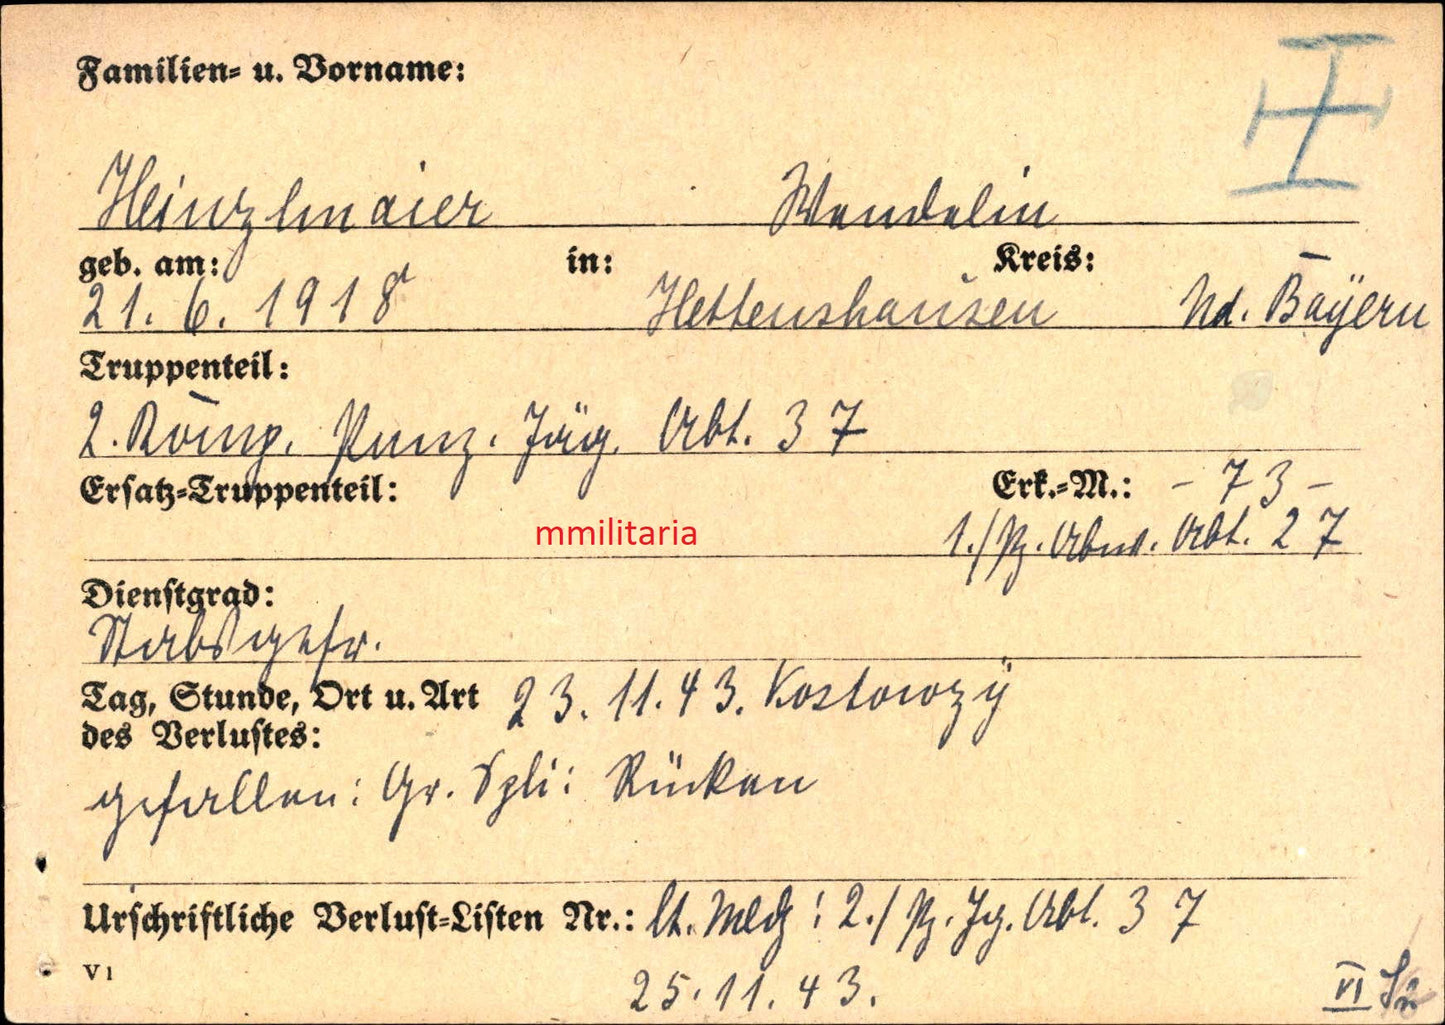 Familien- u. Vorname:
Heinzlmaier Wendelin
geb. am: in: Kreis:
21. 6. 1918 Hettenshausen Nd. Bayern
Truppenteil:
2. Komp. Panz. Jäg. Abt. 37
Ersatz-Truppenteil: Erk.-M.: - 73 -
mmilitaria
1./Pz. Abw. Abt. 27
Dienstgrad:
Stabsgefr.
Tag, Stunde, Ort u. Art 23. 11. 43. Kostowzy
des Verlustes:
gefallen: Gr. Spli: Rücken
Urschriftliche Verlust-Listen Nr.: lt. Meldg: 2./Pz. Jg. Abt. 37
V1 25. 11. 43. VI